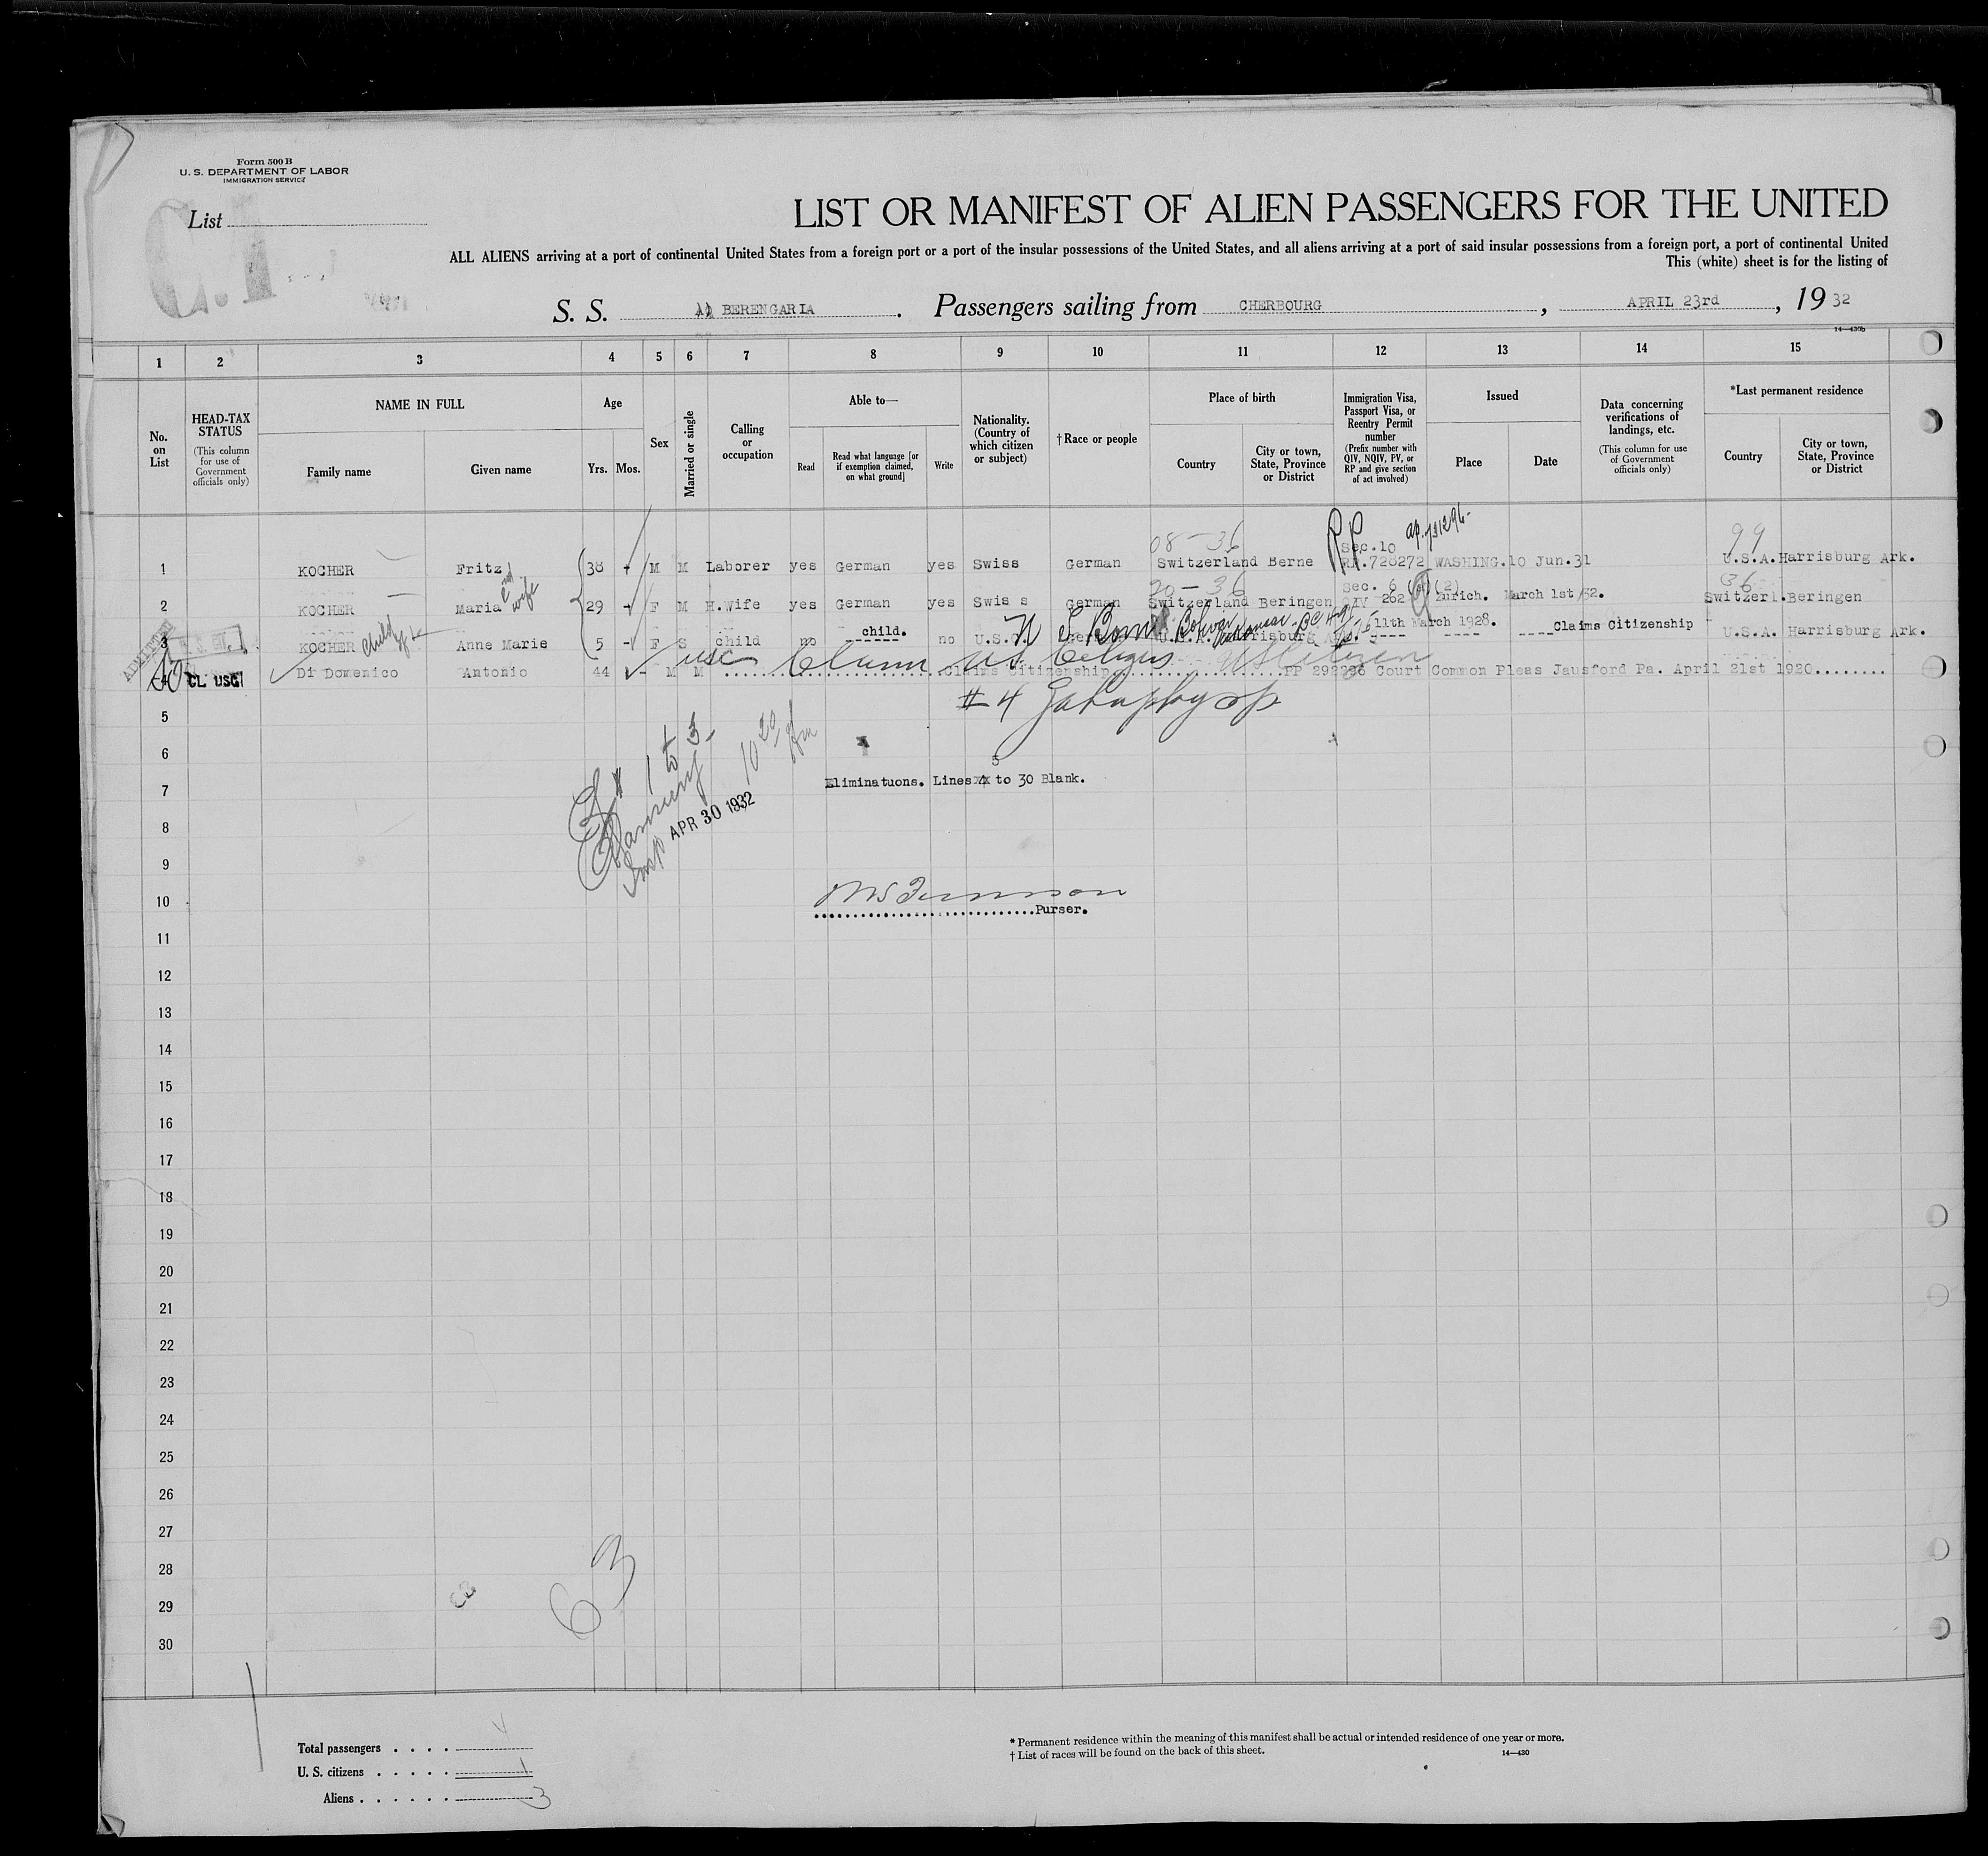 Form 500 B
U. S. DEPARTMENT OF LABOR
IMMIGRATION SERVICE
List
LIST OR MANIFEST OF ALIEN PASSENGERS FOR THE UNITED
ALL ALIENS arriving at a port of continental United States from a foreign port or a port of the insular possessions of the United States, and all aliens arriving at a port of said insular possessions from a foreign port, a port of continental United
This (white) sheet is for the listing of
S. S. BERENGARIA . Passengers sailing from CHERBOURG , APRIL 23rd , 19 32
14—430b
1 2 3 4 5 6 7 8 9 10 11 12 13 14 15
No. on List
HEAD-TAX STATUS
(This column for use of Government officials only)
NAME IN FULL
Family name
Given name
Age
Yrs.
Mos.
Sex
Married or single
Calling or occupation
Able to—
Read
Read what language [or if exemption claimed, on what ground]
Write
Nationality. (Country of which citizen or subject)
† Race or people
Place of birth
Country
City or town, State, Province or District
Immigration Visa, Passport Visa, or Reentry Permit number
(Prefix number with QIV, NQIV, PV, or RP and give section of act involved)
Issued
Place
Date
Data concerning verifications of landings, etc.
(This column for use of Government officials only)
*Last permanent residence
Country
City or town, State, Province or District
08-36
RP
Sec.10
99
1 KOCHER Fritz 38 M M Laborer yes German yes Swiss German Switzerland Berne RP.728272 WASHING. 10 Jun.31 U.S.A. Harrisburg Ark.
and wife
20-36
Sec. 6 (2)
36
2 KOCHER Maria 29 F M H.Wife yes German yes Swiss German Switzerland Beringen QIV 262 Zurich. March 1st/32. Switzerl. Beringen
child.
11th March 1928.
3 KOCHER Child of Anne Marie 5 F S child no no ---- ---- ---- Claims Citizenship U.S.A. Harrisburg Ark.
ADMITTED
CL USC
USC Claim US Citizen
4 Di Domenico Antonio 44 - M M Claims Citizenship PP 292296 Court Common Pleas Jausford Pa. April 21st 1920........
#4
5
6
7
5
Eliminatuons. Lines 4 to 30 Blank.
# 1 to 3
Insp APR 30 1932
8
9
10
Purser.
11
12
13
14
15
16
17
18
19
20
21
22
23
24
25
26
27
28
29
30
63
Total passengers . . . .
U. S. citizens . . . . . 1
Aliens . . . . . . 3
* Permanent residence within the meaning of this manifest shall be actual or intended residence of one year or more.
† List of races will be found on the back of this sheet.
14—430